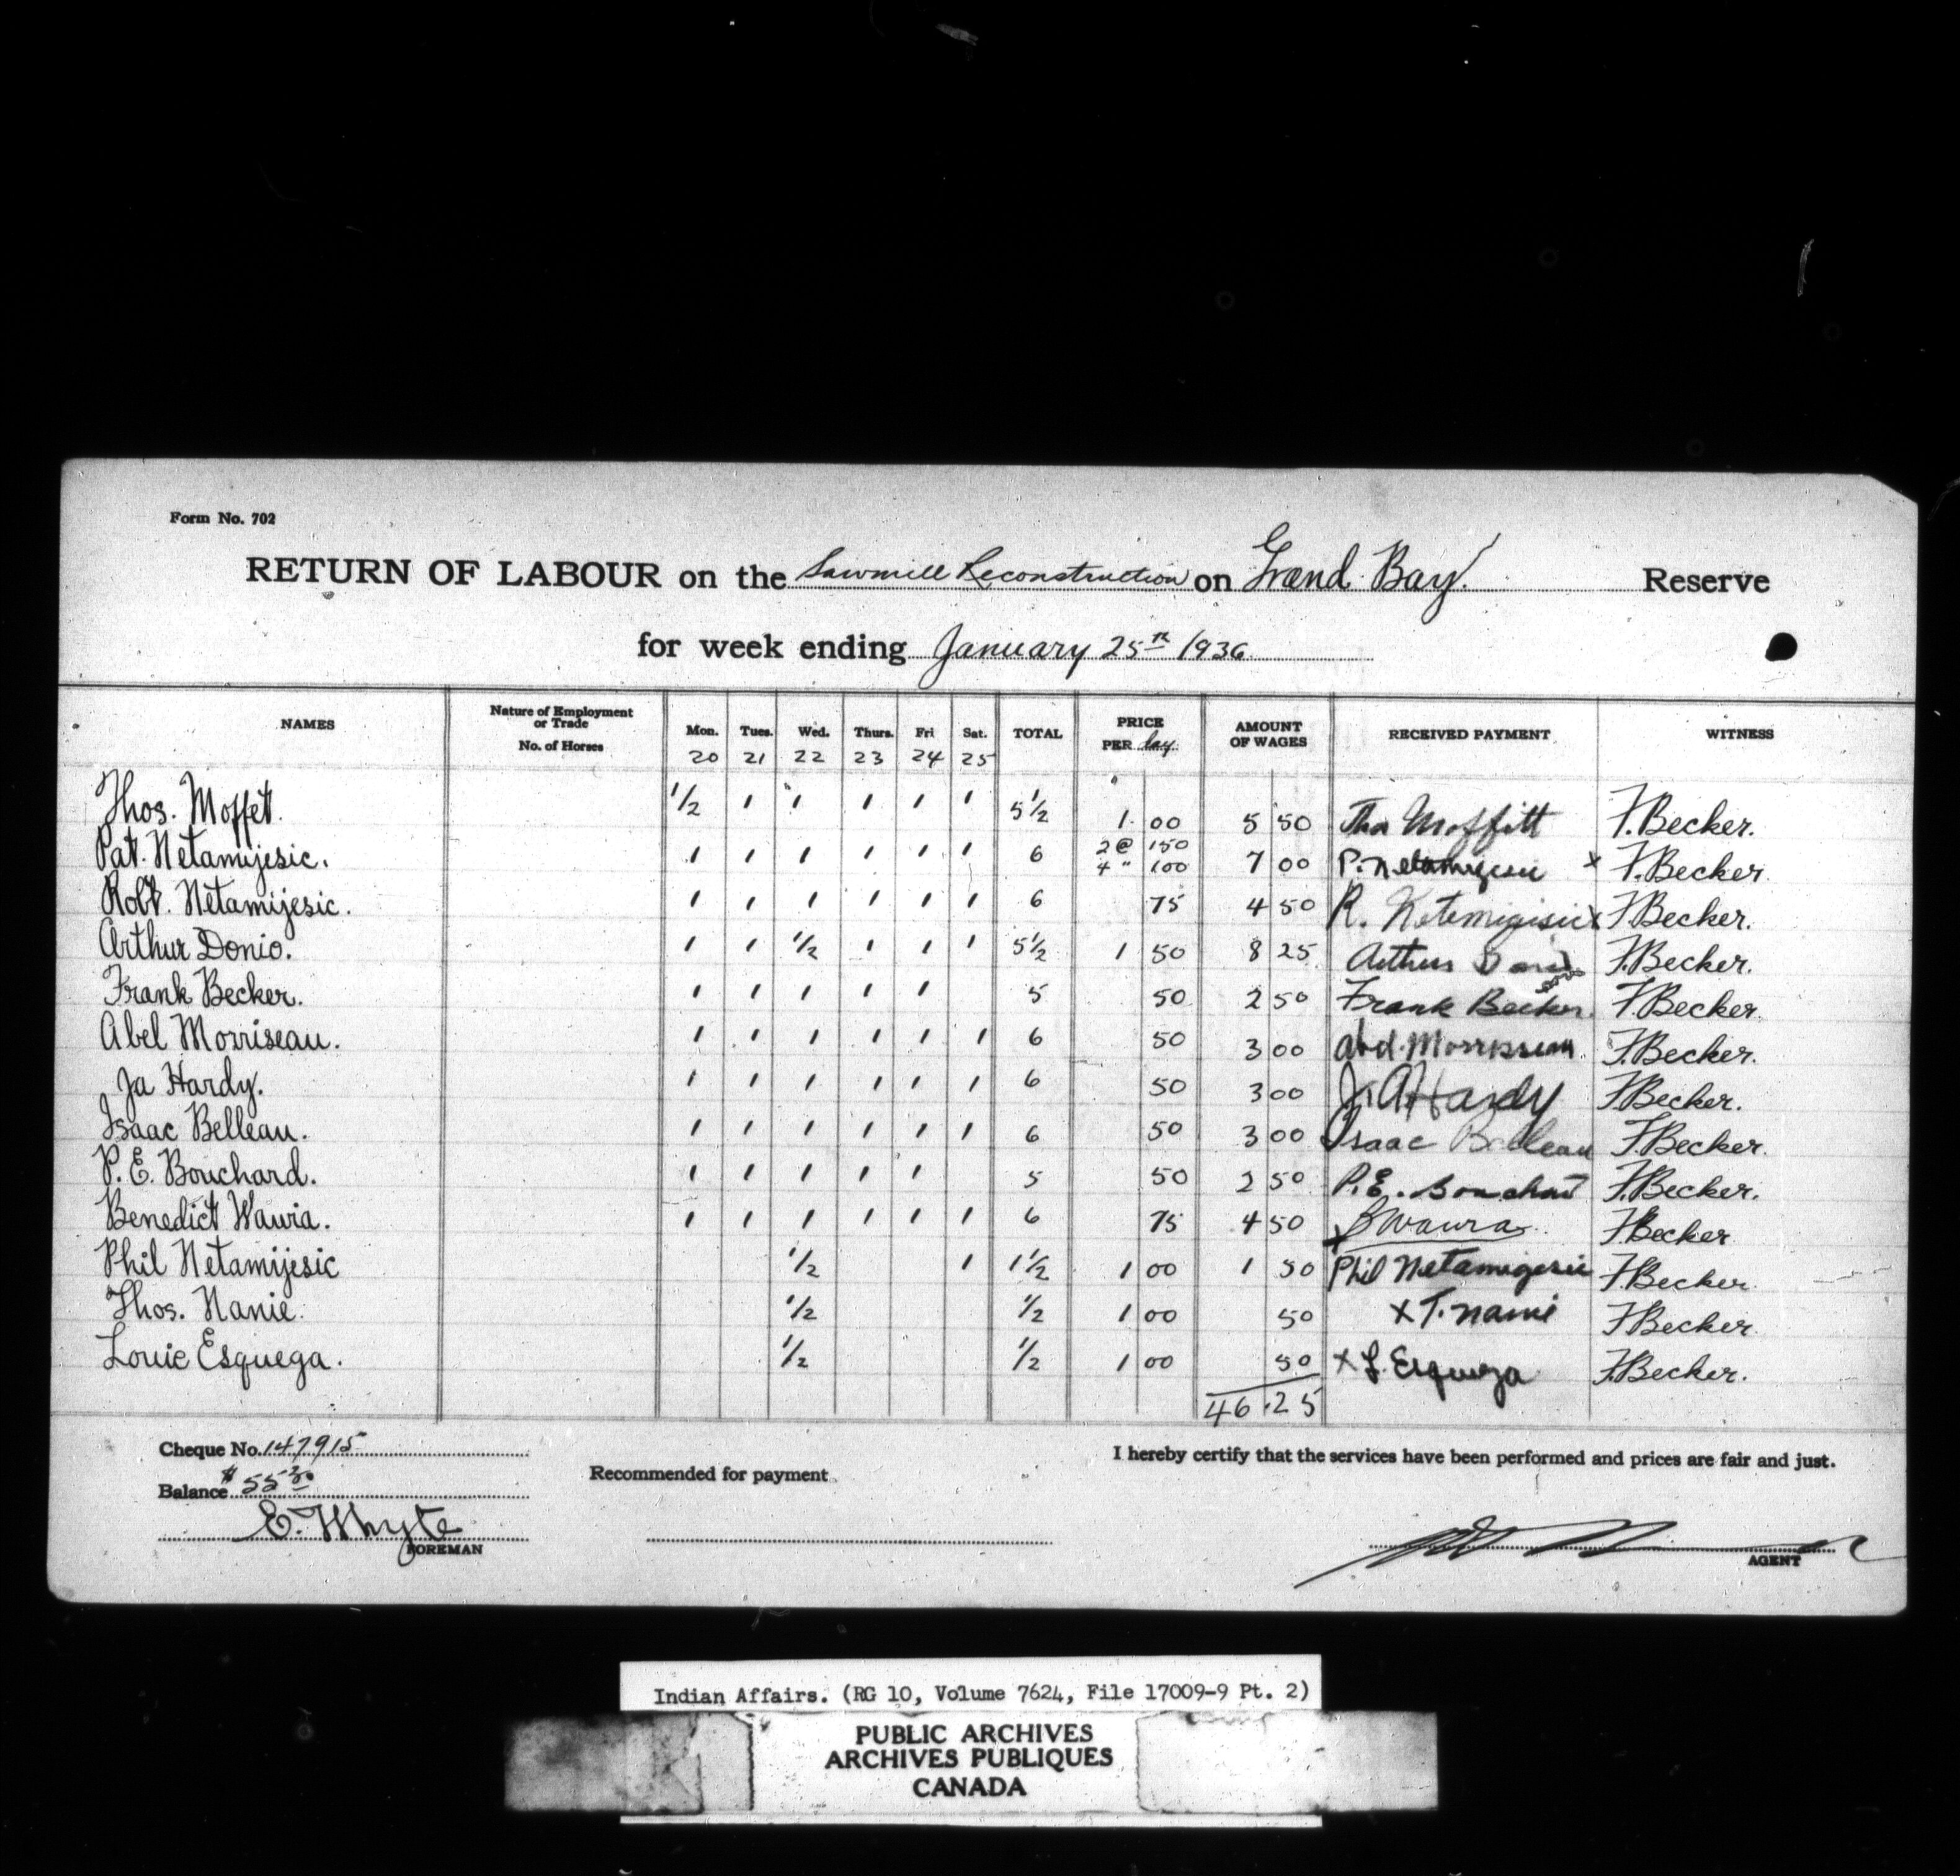 Form No. 702
RETURN OF LABOUR on the Sawmill Reconstruction on Grand Bay. Reserve
for week ending January 25th 1936
NAMES Nature of Employment or Trade No. of Horses Mon. 20 Tues. 21 Wed. 22 Thurs. 23 Fri 24 Sat. 25 TOTAL PRICE PER day. AMOUNT OF WAGES RECEIVED PAYMENT WITNESS
Thos. Moffet. 1/2 1 1 1 1 1 5 1/2 1. 00 5 50 Thos Moffitt F. Becker.
Pat. Netamijesic. 1 1 1 1 1 1 6 2 @ 150 4 " 100 7 00 P. Netamigesic x F. Becker.
Robt. Netamijesic. 1 1 1 1 1 1 6 75 4 50 R. Netemigisic x F. Becker.
Arthur Donio. 1 1 1/2 1 1 1 5 1/2 1 50 8 25 Arthur F. Becker.
Frank Becker. 1 1 1 1 1 5 50 2 50 Frank Becker. F. Becker.
Abel Morriseau. 1 1 1 1 1 1 6 50 3 00 Abel. F. Becker.
Ja Hardy. 1 1 1 1 1 1 6 50 3 00 J. A Hardy F. Becker.
Isaac Belleau. 1 1 1 1 1 1 6 50 3 00 Isaac Belleau F. Becker.
P. E. Bouchard. 1 1 1 1 1 5 50 2 50 P. E. Bouchard F. Becker.
Benedict Wawia. 1 1 1 1 1 1 6 75 4 50 x B Wawra F. Becker
Phil Netamijesic 1/2 1 1 1/2 1 00 1 50 Phil Netamigesic F. Becker.
Thos. Nanie. 1/2 1/2 1 00 50 x T. Nanie F. Becker.
Louie Esquega. 1/2 1/2 1 00 50 x L. Esquega F. Becker.
46.25
Cheque No. 147915
Balance $ 55 30
E. Whyte
FOREMAN
Recommended for payment
I hereby certify that the services have been performed and prices are fair and just.
AGENT
Indian Affairs. (RG 10, Volume 7624, File 17009-9 Pt. 2)
PUBLIC ARCHIVES
ARCHIVES PUBLIQUES
CANADA